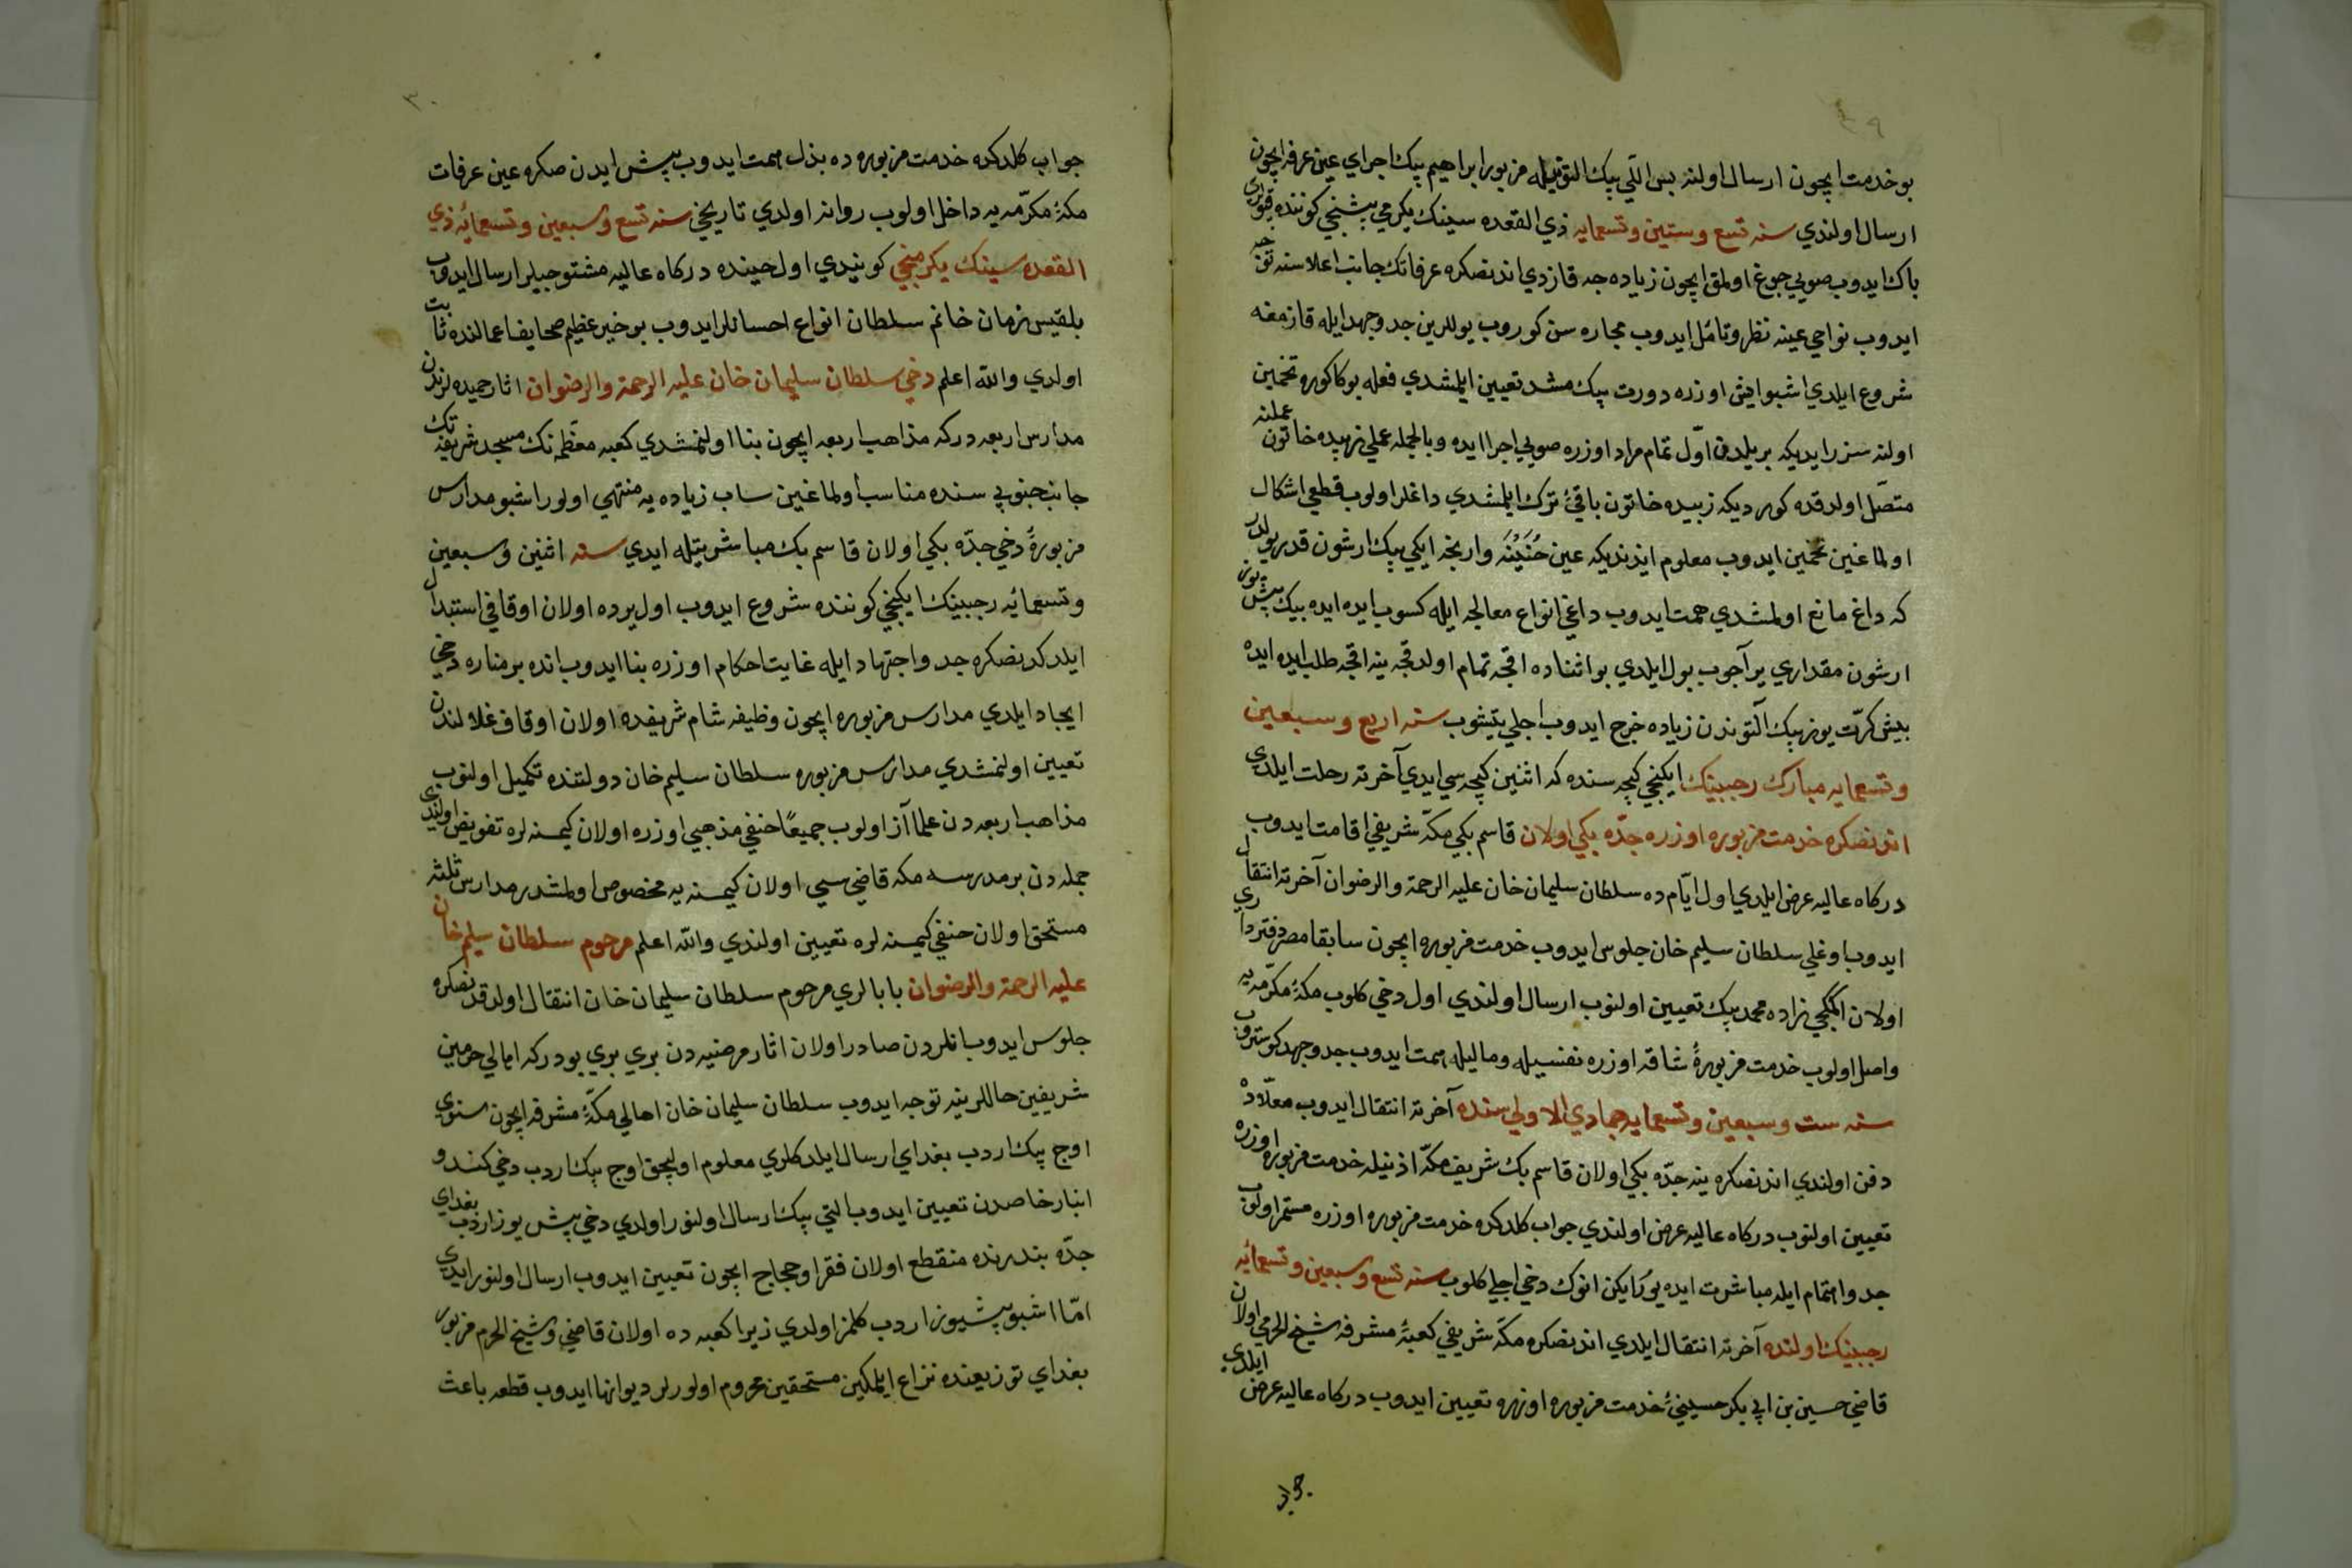 بو خدمت ايچون ارسال اولنه بس اللي بيك التونيله مزبور ابراهيم بيك اجراي عين عرفه ايچون
ارسال اولندي سنه تسع وستين وتسعمايه ذي القعده سينك يكرمي بشنجي كوننده قيولري
باك ايدوب صويي جوغ اولمق ايچون زياده جه قازدي اندنصكره عرفاتك جانب اعلاسنه توجه
ايدوب نواحي عينه نظر وتامل ايدوب مجاره سن كوروب يوللرين جد وجهد ايله قازمغه
شروع ايلدي اشبو ايش اوزره دورت بيك مشد تعيين ايلمشدي فعله بوكا كوره تخمين
اولنه سزر ايديكه بر يلدن اول تمام مراد اوزره صويي اجرا ايده وبالجمله عملي زبيده خاتون عملنه
متصل اولدقده كورديكه زبيده خاتون باقيئ ترك ايلمشدي داغلر اولوب قطعي اشكال
اولماغين تخمين ايدوب معلوم ايدنديكه عين حنينه وارنجه ايكي بيك ارشون قدر يولدر
كه داغ مانع اولمشدي همت ايدوب داغي انواع معالجه ايله كسوب ايده ايده بيك بش يوز
ارشون مقداري ير آجوب يول ايلدي بو اثناده اقچه تمام اولدقجه ينه اقچه طلب ايده ايده
بيش كرت يوز بيك التوندن زياده خرج ايدوب اجلي يتيشوب سنه اربع وسبعين
وتسعمايه مبارك رجبينك ايكنجي كيجه سنده كه اثنين كيجه سي ايدي آخرته رحلت ايلدي
اندنصكره خدمت مزبوره اوزره جده بكي اولان قاسم بكي مكه شريفي اقامت ايدوب
دركاه عاليه عرض ايلدي اول ايام ده سلطان سليمان خان عليه الرحمة والرضوان آخرته انتقال
ايدوب اوغلي سلطان سليم خان جلوس ايدوب خدمت مزبوره ايچون سابقا مصر دفترداري
اولان اكمكجي زاده محمد بيك تعيين اولنوب ارسال اولندي اول دخي كلوب مكۀ مكرمه يه
واصل اولوب خدمت مزبورۀ شاقه اوزره نفسيله وماليله همت ايدوب جد وجهد كوستروب
سنه ست وسبعين وتسعمايه جمادي الاولي سنده آخرته انتقال ايدوب معلاده
دفن اولندي اندنصكره ينه جده بكي اولان قاسم بك شريف مكه اذنيله خدمت مزبوره اوزره
تعيين اولنوب دركاه عاليه عرض اولندي جواب كلدكده خدمت مزبوره اوزره مستمر اولوب
جد واهتمام ايله مباشرت ايده يوركن انوك دخي اجلي كلوب سنه تسع وسبعين وتسعمائه
رجبينك اولنده آخرته انتقال ايلدي اندنصكره مكه شريفي كعبۀ مشرفه شيخ الحرمي اولان
قاضي حسين بن ابي بكر حسينيئ خدمت مزبوره اوزره تعيين ايدوب دركاه عاليه عرض ايلدي
جواب
٣٠
جواب كلدكده خدمت مزبوره ده بذل همت ايدوب بيش ايدن صكره عين عرفات
مكۀ مكرمه يه داخل اولوب روانه اولدي تاريخي سنه تسع وسبعين وتسعمائه ذي
القعده سينك يكرمنجي كونيدي اول حينده دركاه عاليه مشتوجيلر ارسال ايدوب
بلقيس زمان خانم سلطان انواع احسانلر ايدوب بو خير عظيم صحايف اعمالنده ثابت
اولدي والله اعلم دخي سلطان سليمان خان عليه الرحمة والرضوان اثار حميده لرندن
مدارس اربعه دركه مذاهب اربعه ايچون بنا اولنمشدي كعبه معظمه نك مسجد شريفنك
جانب جنوبي سنده مناسب اولماغين ساب زياده يه منتهي اولور اشبو مدارس
مزبورۀ دخي جده بكي اولان قاسم بك مباشرتيله ايدي سنه اثنين وسبعين
وتسعمائه رجبينك ايكنجي كوننده شروع ايدوب اول يرده اولان اوقافي استبدال
ايلدكدنصكره جد واجتهاد ايله غايت احكام اوزره بنا ايدوب انده بر مناره دخي
ايجاد ايلدي مدارس مزبوره ايچون وظيفه شام شريفده اولان اوقاف غلالندن
تعيين اولنمشدي مدارس مزبوره سلطان سليم خان دولتنده تكميل اولنوب
مذاهب اربعه دن علما آز اولوب جميعًا حنفي مذهبي اوزره اولان كيمسنه لره تفويض اولندي
جمله دن بر مدرسه مكه قاضي سي اولان كيمسنه يه مخصوص اولمشدر مدارس ثلثه
مستحق اولان حنفي كيمسنه لره تعيين اولندي والله اعلم مرحوم سلطان سليم خان
عليه الرحمة والرضوان بابالري مرحوم سلطان سليمان خان انتقال اولدقدنصكره
جلوس ايدوب انلردن صادر اولان اثار مرضيه دن بري بري بودركه اهالي حرمين
شريفين حاللرينه توجه ايدوب سلطان سليمان خان اهالي مكۀ مشرفه ايچون سنوي
اوج بيك اردب بغداي ارسال ايلدكلري معلوم اوليجق اوج بيك اردب دخي كندو
انبار خاصدن تعيين ايدوب التي بيك ارسال اولنور اولدي دخي بش يوز اردب بغداي
جده بندرنده منقطع اولان فقرا وحجاج ايچون تعيين ايدوب ارسال اولنور ايدي
اما اشبو بشيوز اردب كلمز اولدي زيرا كعبه ده اولان قاضي وشيخ الحرم مزبور
بغداي توزيعنده نزاع ايلمكين مستحقين محروم اولورلر ديوانها ايدوب قطعه باعث